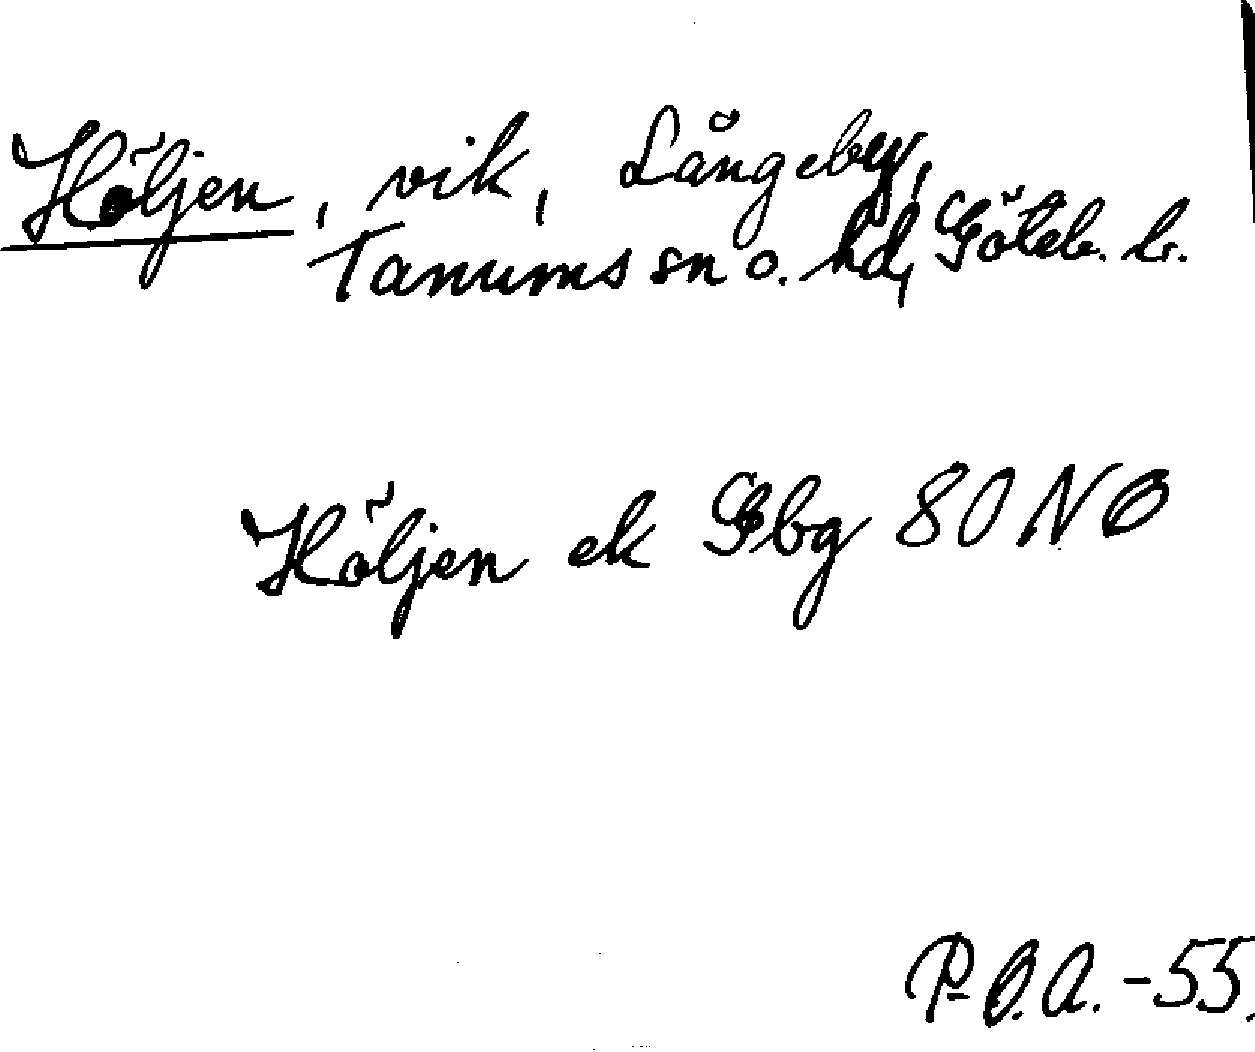 Höljen, vik, Långeby,
Tanums sn o. hd, Göteb. l.
Höljen ek Gbg 80 NO
P-O.A. -55.